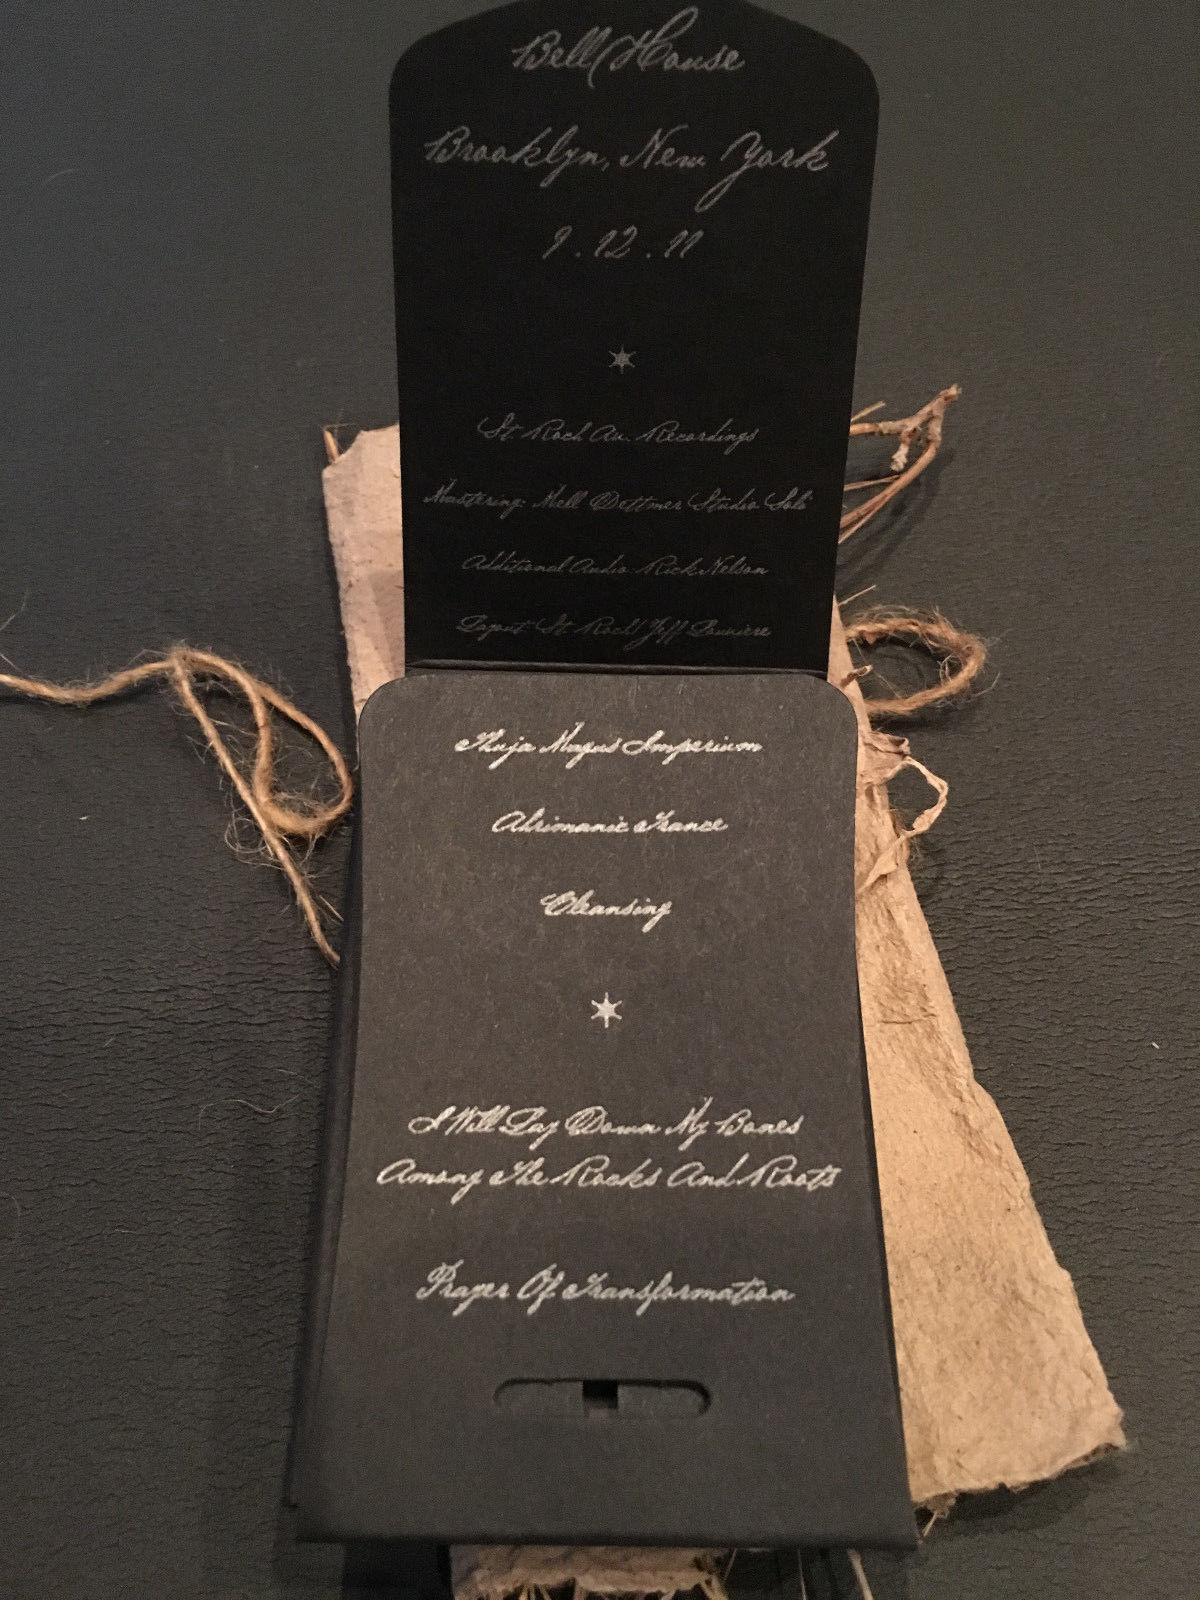 Bell House
Brooklyn, New York
9.12.11
St. Roch Av. Recordings
Mastering: Mell Dettmer Studio Soli
Additional Audio: Rick Nelson
Layout: St. Roch/Jeff
Thuja Magus Imperium
Ahrimanic Trance
Cleansing
I Will Lay Down My Bones
Among The Rocks And Roots
Prayer Of Transformation